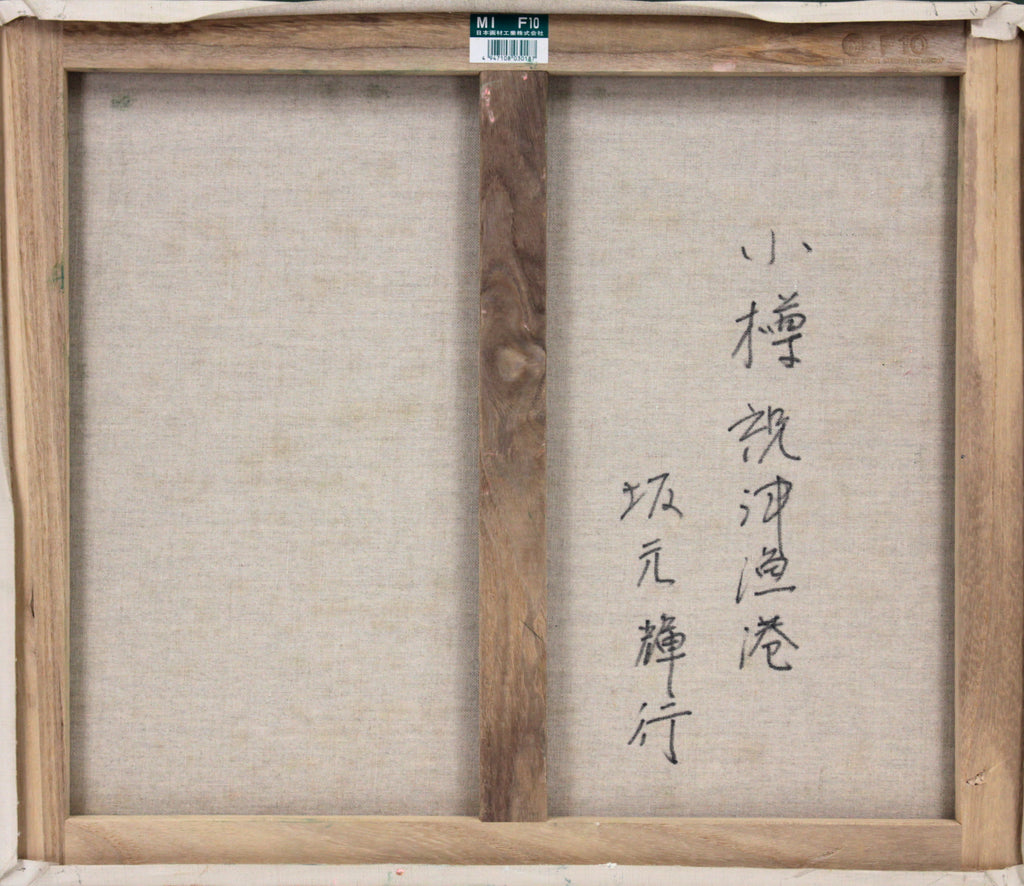 M1 F10
日本画材工業株式会社
4 947108 030187
F10
小樽 祝津漁港
坂元輝行